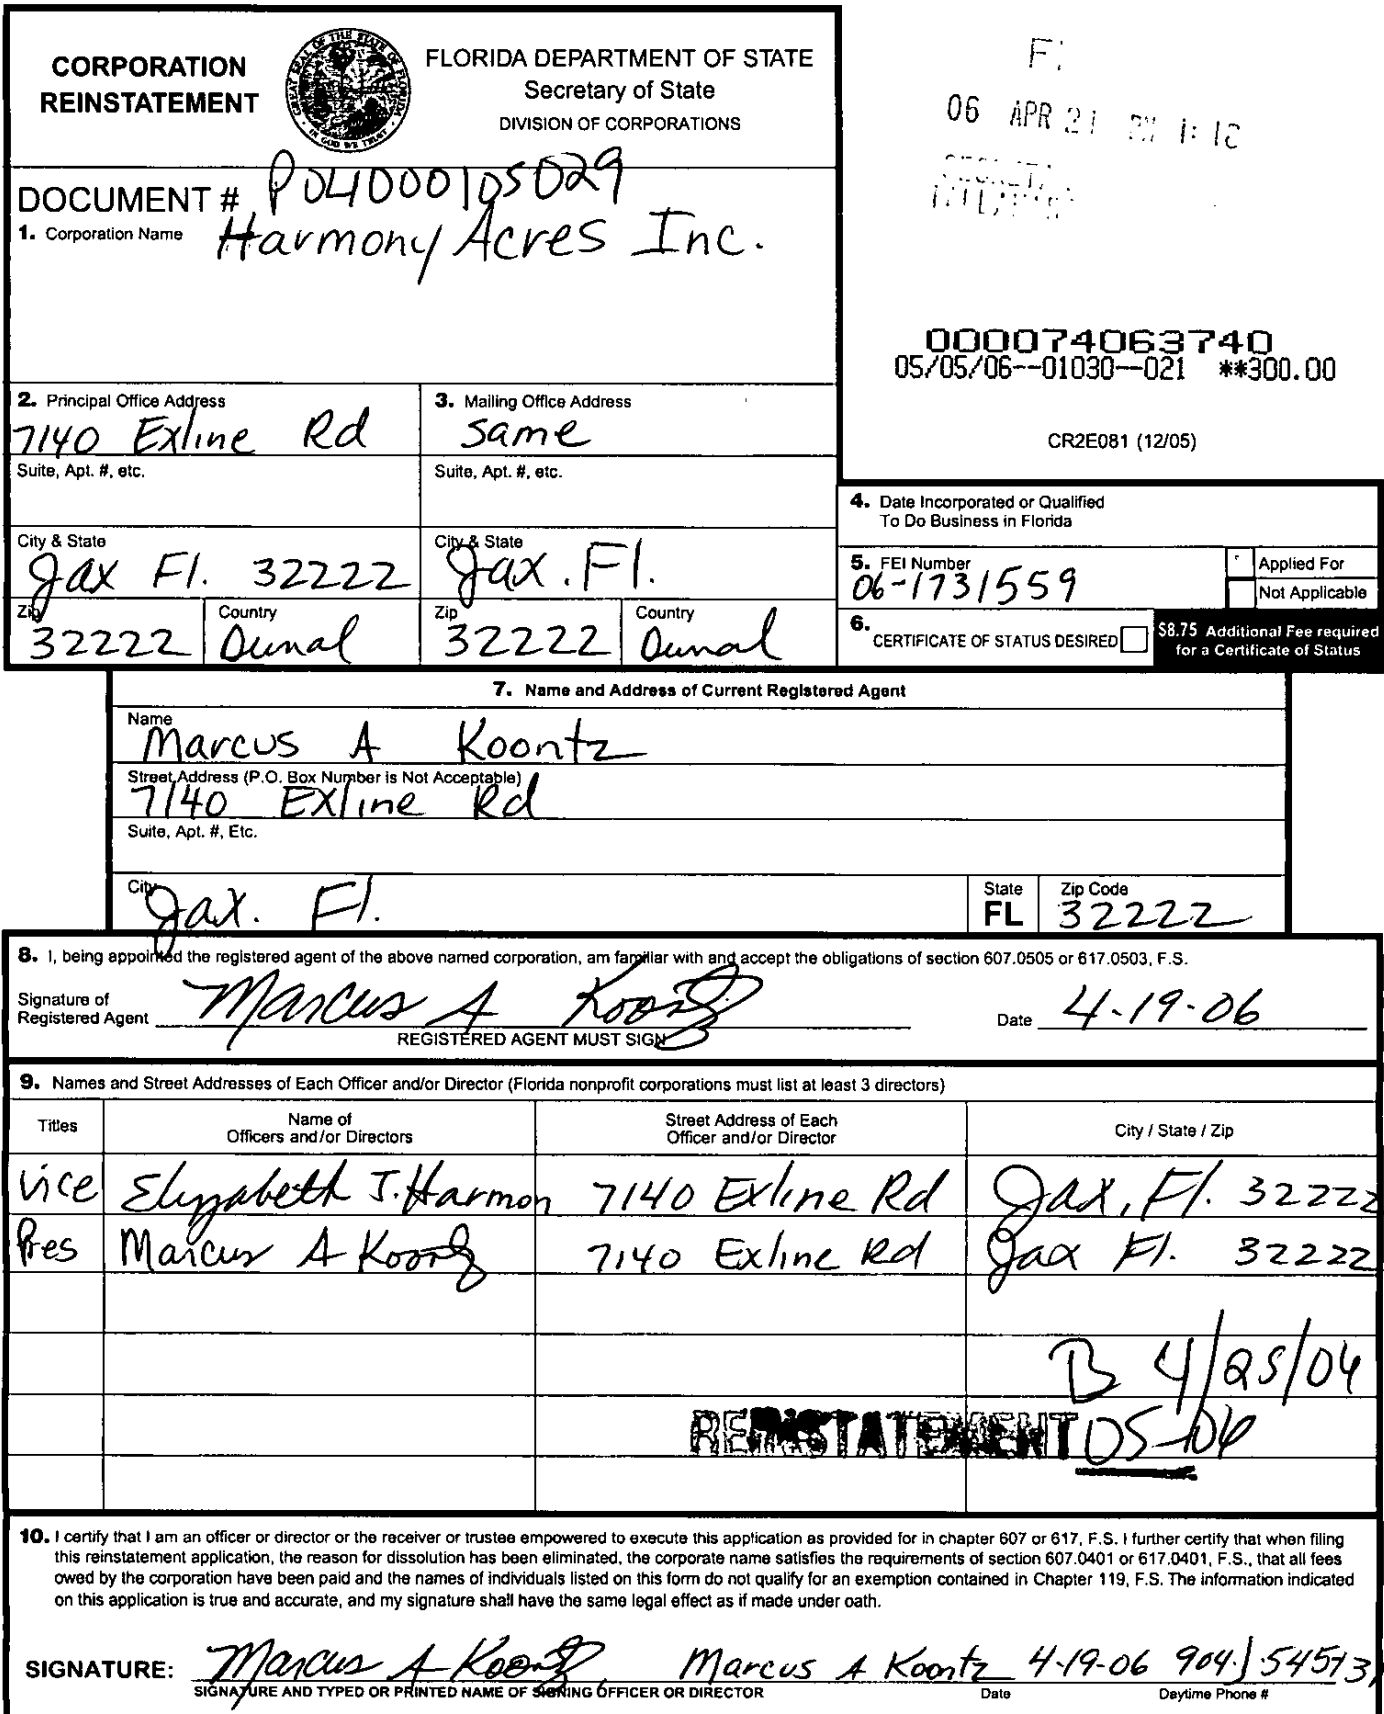 CORPORATION
REINSTATEMENT
GREAT SEAL OF THE STATE OF FLORIDA
IN GOD WE TRUST
FLORIDA DEPARTMENT OF STATE
Secretary of State
DIVISION OF CORPORATIONS
06 APR 21 1:12
DOCUMENT # P04000105029
1. Corporation Name Harmony Acres Inc.
000074063740
05/05/06--01030--021 **300.00
CR2E081 (12/05)
2. Principal Office Address
7140 Exline Rd
Suite, Apt. #, etc.
City & State
Jax Fl. 32222
Zip
32222
Country
Duval
3. Mailing Office Address
same
Suite, Apt. #, etc.
City & State
Jax. Fl.
Zip
32222
Country
Duval
4. Date Incorporated or Qualified
To Do Business in Florida
5. FEI Number
06-1731559
Applied For
Not Applicable
6. CERTIFICATE OF STATUS DESIRED
$8.75 Additional Fee required
for a Certificate of Status
7. Name and Address of Current Registered Agent
Name
Marcus A Koontz
Street Address (P.O. Box Number is Not Acceptable)
7140 Exline Rd
Suite, Apt. #, Etc.
City
Jax. Fl.
State
FL
Zip Code
32222
8. I, being appointed the registered agent of the above named corporation, am familiar with and accept the obligations of section 607.0505 or 617.0503, F.S.
Signature of
Registered Agent Marcus A Koontz
REGISTERED AGENT MUST SIGN
Date 4-19-06
9. Names and Street Addresses of Each Officer and/or Director (Florida nonprofit corporations must list at least 3 directors)
Titles
Name of
Officers and/or Directors
Street Address of Each
Officer and/or Director
City / State / Zip
Vice Elizabeth J. Harmon 7140 Exline Rd Jax, Fl. 32222
Pres Marcus A Koontz 7140 Exline Rd Jax Fl. 32222
B 4/25/06
REINSTATEMENT 05-06
10. I certify that I am an officer or director or the receiver or trustee empowered to execute this application as provided for in chapter 607 or 617, F.S. I further certify that when filing
this reinstatement application, the reason for dissolution has been eliminated, the corporate name satisfies the requirements of section 607.0401 or 617.0401, F.S., that all fees
owed by the corporation have been paid and the names of individuals listed on this form do not qualify for an exemption contained in Chapter 119, F.S. The information indicated
on this application is true and accurate, and my signature shall have the same legal effect as if made under oath.
SIGNATURE: Marcus A Koontz Marcus A Koontz 4-19-06 904
SIGNATURE AND TYPED OR PRINTED NAME OF SIGNING OFFICER OR DIRECTOR
Date
Daytime Phone #